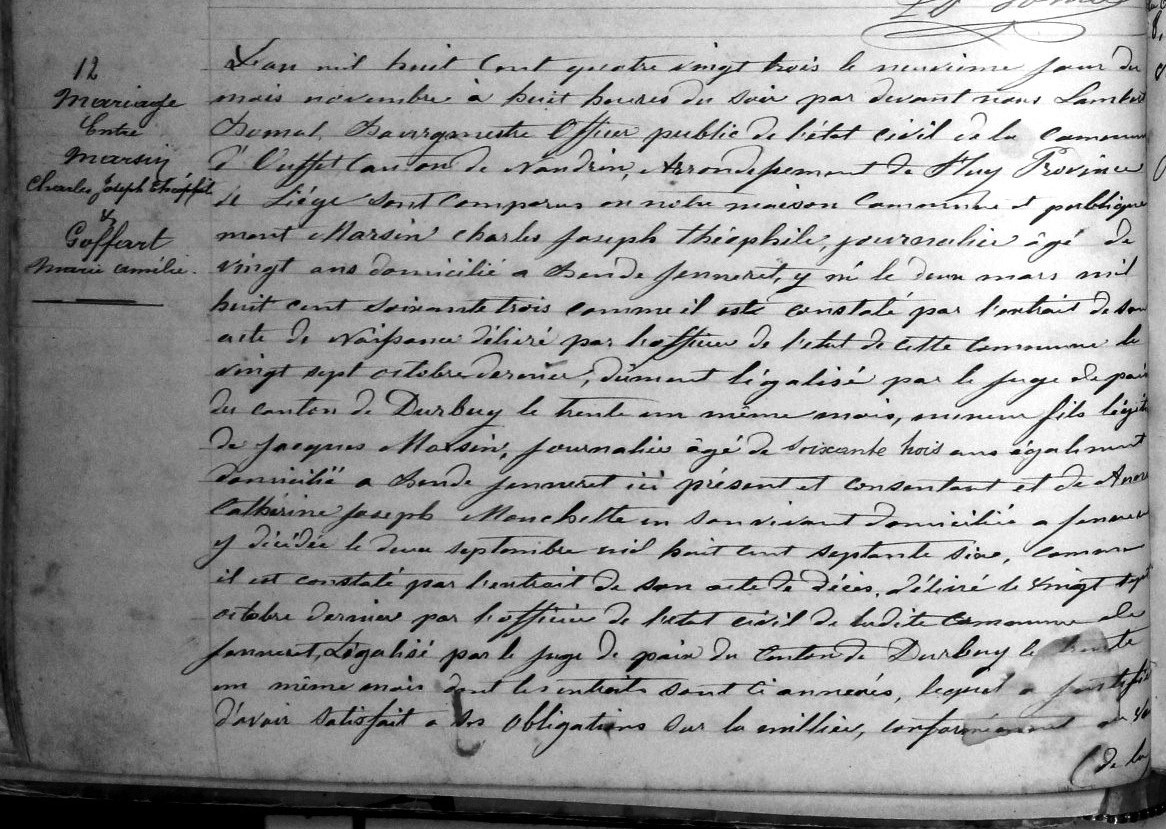 12
Mariage
Entre
Marsin
Charles Joseph Théophile
&
Goffart
Marie Amélie.
L'an mil huit cent quatre vingt trois le neuvième jour du
mois novembre à huit heures du soir par devant nous Lambert
Bourgmestre Officier public de l'état civil de la commune
d'Ouffet Canton de Nandrin, Arrondissement de Huy Province
de Liége sont comparus en notre maison Commune et publique
ment Marsin Charles Joseph Théophile, journalier âgé de
vingt ans domicilié a Bende Jenneret, y né le deux mars mil
huit cent soixante trois comme il est constaté par l'extrait de son
acte de Naissance délivré par l'officier de l'état de cette commune le
vingt sept octobre dernier, dûment légalisé par le juge de paix
du canton de Durbuy le trente un même mois, mineur fils légit
de Jacques Marsin, journalier âgé de soixante trois ans également
domicilié a Bende Jenneret ici présent et consentant et de Anne
Cathérine Joseph Monchette en son vivant domiciliée a Jenneret
y décédée le deux septembre mil huit cent septante six, comme
il est constaté par l'extrait de son acte de décès, délivré le vingt sept
octobre dernier par l'officier de l'état civil de ladite commune de
Jenneret, Légalisé par le juge de paix du Canton de Durbuy le trente
un même mois dont les extraits sont ci annexés, lequel a justifié
d'avoir satisfait a ses obligations sur la millice, conformément
(de la